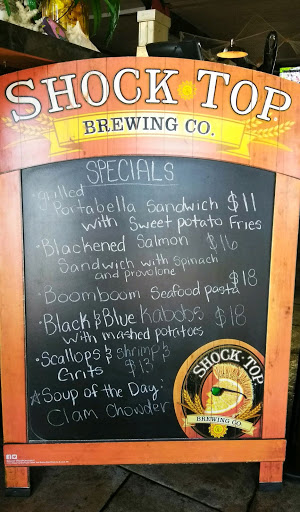 SHOCK TOP
BREWING CO.
SPECIALS
Grilled
Portabella Sandwich $11
with Sweet potato Fries
• Blackened Salmon $16
Sandwich with Spinach
and provolone
• Boomboom Seafood pasta $18
• Black & Blue Kabobs $18
with mashed potatoes
• Scallops & shrimp &
Grits $13
☆ Soup of the Day:
Clam Chowder
SHOCK TOP
BREWING CO.